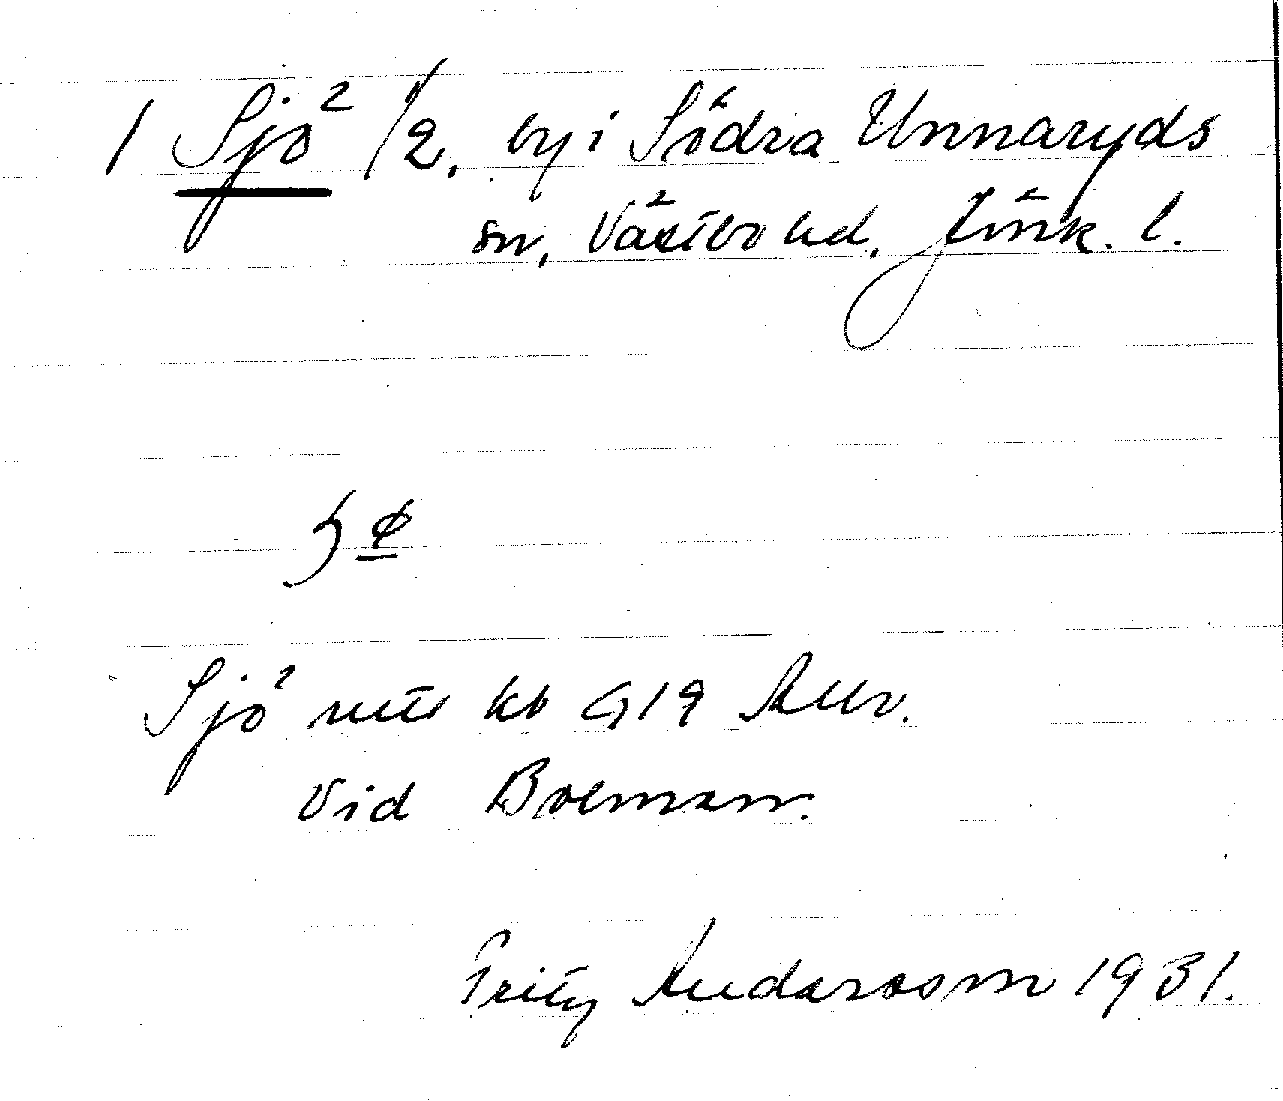 1 Sjö 1/2, by i Södra Unnaryds
sn, Västbo hd, Jönk. l.
Sjö kb G19
vid Bolmen.
Fritz Andersson 1931.